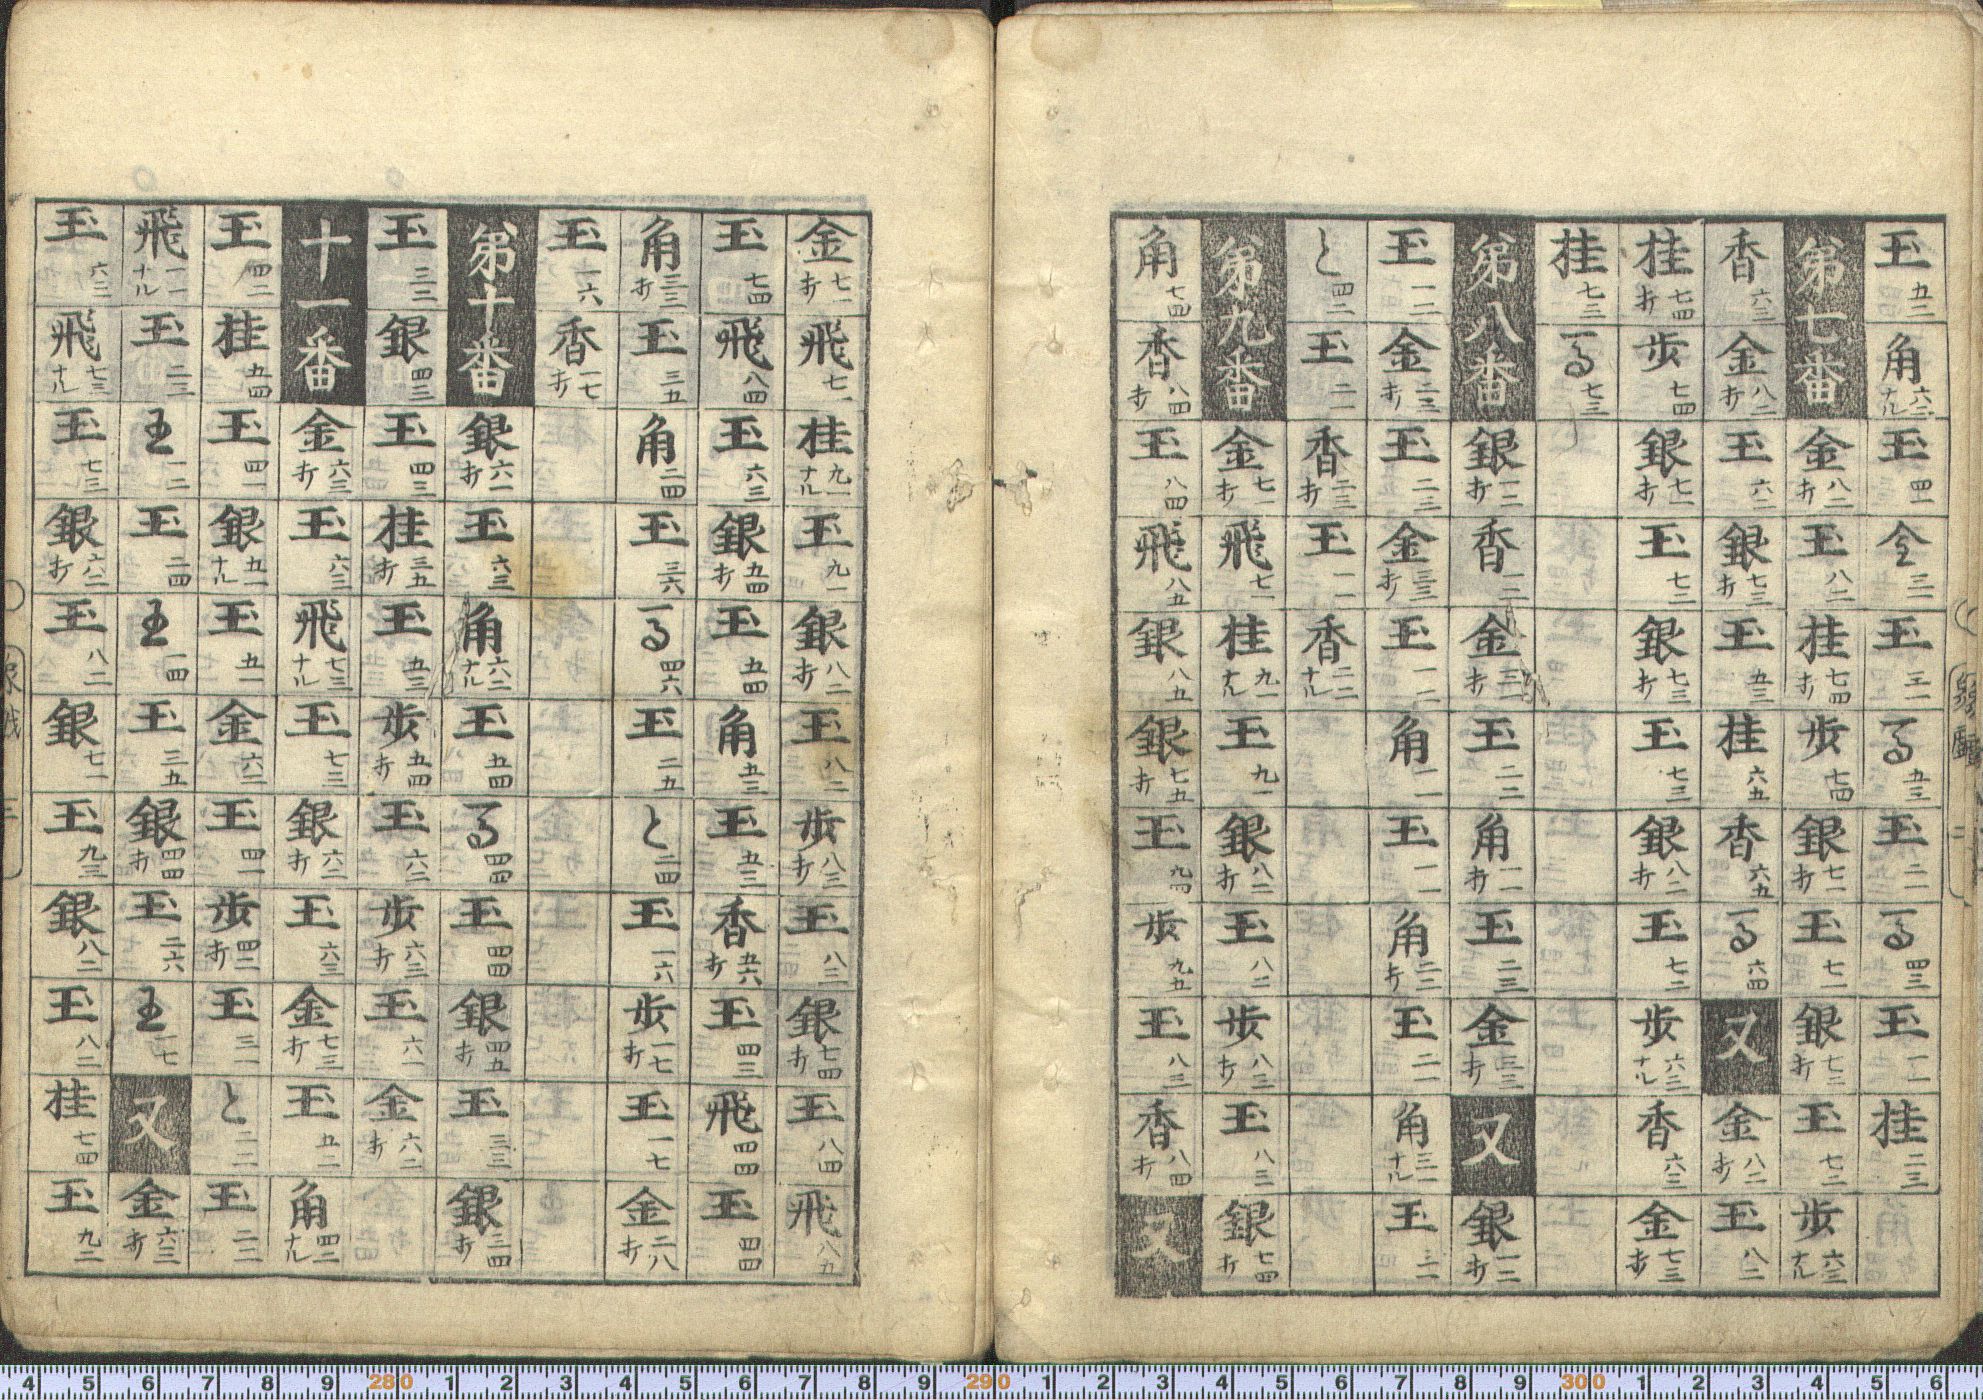 玉五二 角六二ナル 玉四一 仝三一 玉三一 馬五三 玉二一 馬四三 玉一一 桂二三
第七番 金八二打 玉八二 桂七四打 歩七四 銀七一打 玉七一 銀七二打 玉七二 歩六三ナル
香六三 金八二打 玉六二 銀七三打 玉五三 桂六五 香六五 馬六四 又 金八二打 玉八二
桂七四打 歩七四 銀七一打 玉七二 銀七三打 玉七三 銀八二打 玉七二 歩六三ナル 香六三 金七三打
桂七三 馬七三
第八番 銀一二打 香一二 金三二打 玉二二 角一一打 玉二三 金三三打 又 銀一二打
玉一二 金二三打 玉二三 金三三打 玉一二 角一一 玉一一 角二二打 玉二一 角三一ナル 玉三一
と四二 玉二一 香二三打 玉一一 香二二ナル
第九番 金七一打 飛七一 桂九一ナル 玉九一 銀八二打 玉八二 歩八三打 玉八三 銀七四打
角七四 香八四打 玉八四 飛八五 銀八五 銀七五打 玉九四 歩九五 玉八三 香八四打 又
金七一打 飛七一 桂九一ナル 玉九一 銀八二打 玉八二 歩八三打 玉八三 銀七四打 玉八四 飛八五
玉七四 飛八四 玉六三 銀五四打 玉五四 角五三 玉五三 香五六打 玉四三 飛四四 玉四四
角三三打 玉三五 角二四 玉三六 馬四六 玉二五 と二四 玉一六 歩一七打 玉一七 金二八打
玉一六 香一七打
第十番 銀六二打 玉六三 角六二ナル 玉五四 馬四四 玉四四 銀四五打 玉三三 銀三四打
玉三二 銀四三 玉四三 桂三五打 玉五三 歩五四打 玉六三 歩六三打 玉六一 金六二打
十一番 金六三打 玉六三 飛七三ナル 玉七三 銀六二打 玉六三 金七三打 玉五二 角四二ナル
玉四二 桂五四 玉四一 銀五一ナル 玉五一 金六二 玉四一 歩四二打 玉三一 と二二 玉二二
飛一一ナル 玉二三 玉一二 玉二四 玉一四 玉三五 銀四四打 玉二六 玉一七 又 金六三打
玉六三 飛七三ナル 玉七三 銀六二打 玉八二 銀七一 玉九三 銀八二 玉八二 桂七四 玉九二